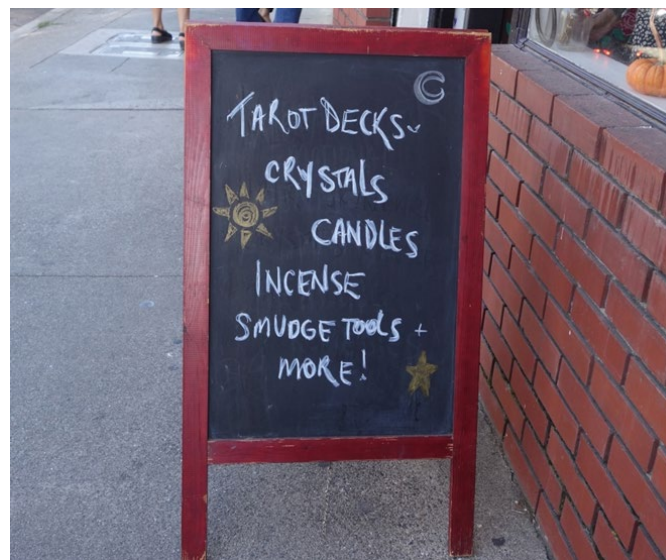 TAROT DECKS~
CRYSTALS
CANDLES
INCENSE
SMUDGE TOOLS +
MORE!